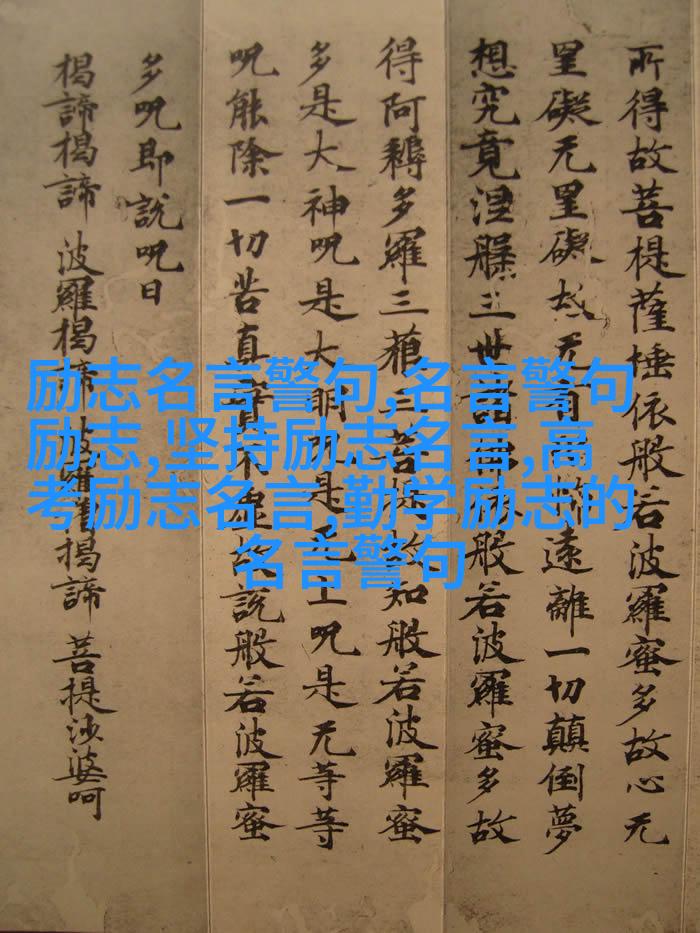 所得故菩提薩埵依般若波羅蜜多故心无
罣礙无罣礙故无有遠離一切顛倒夢
想究竟涅槃三世諸般若波羅蜜多故
得阿耨多羅三藐三菩提故知般若波羅蜜
多是大神呪是大明呪是无上呪是无等等
呪能除一切苦真實不虛故說般若波羅蜜
多呪即說呪曰
揭諦揭諦 波羅揭諦 波羅僧揭諦 菩提沙婆呵
励志名言警句,名言警句
励志,坚持励志名言,高
考励志名言,勤学励志的
名言警句